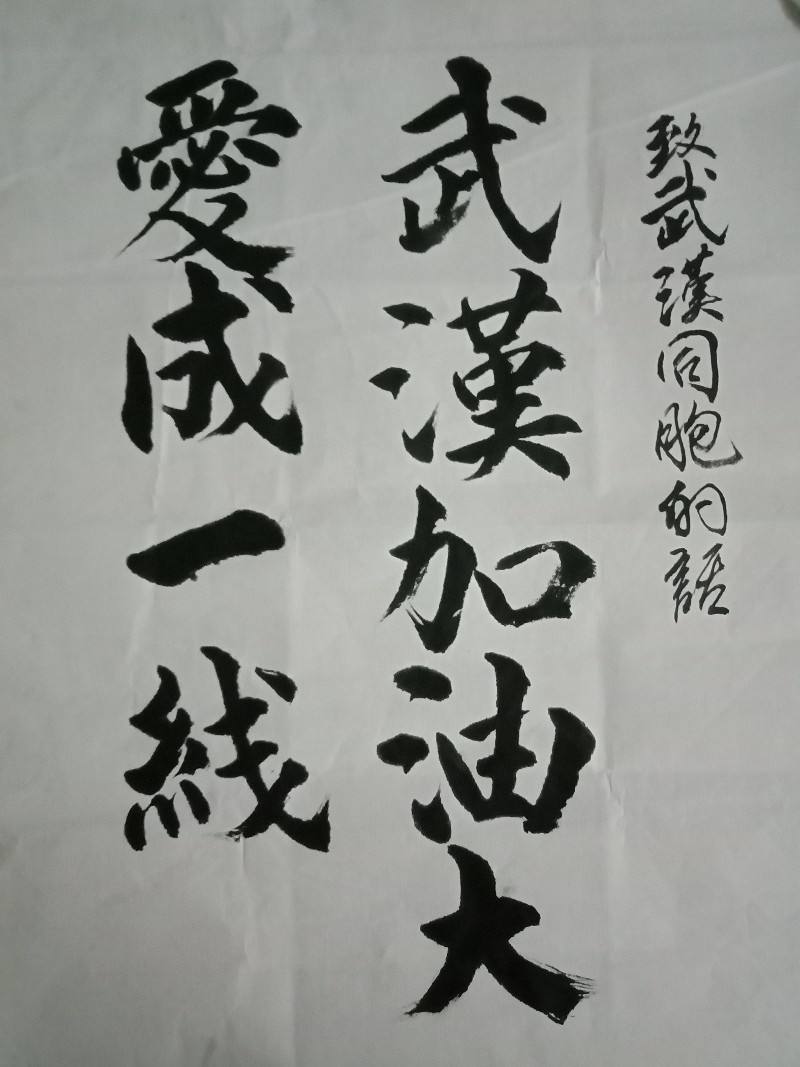 致武漢同胞的話
武漢加油大
愛成一线